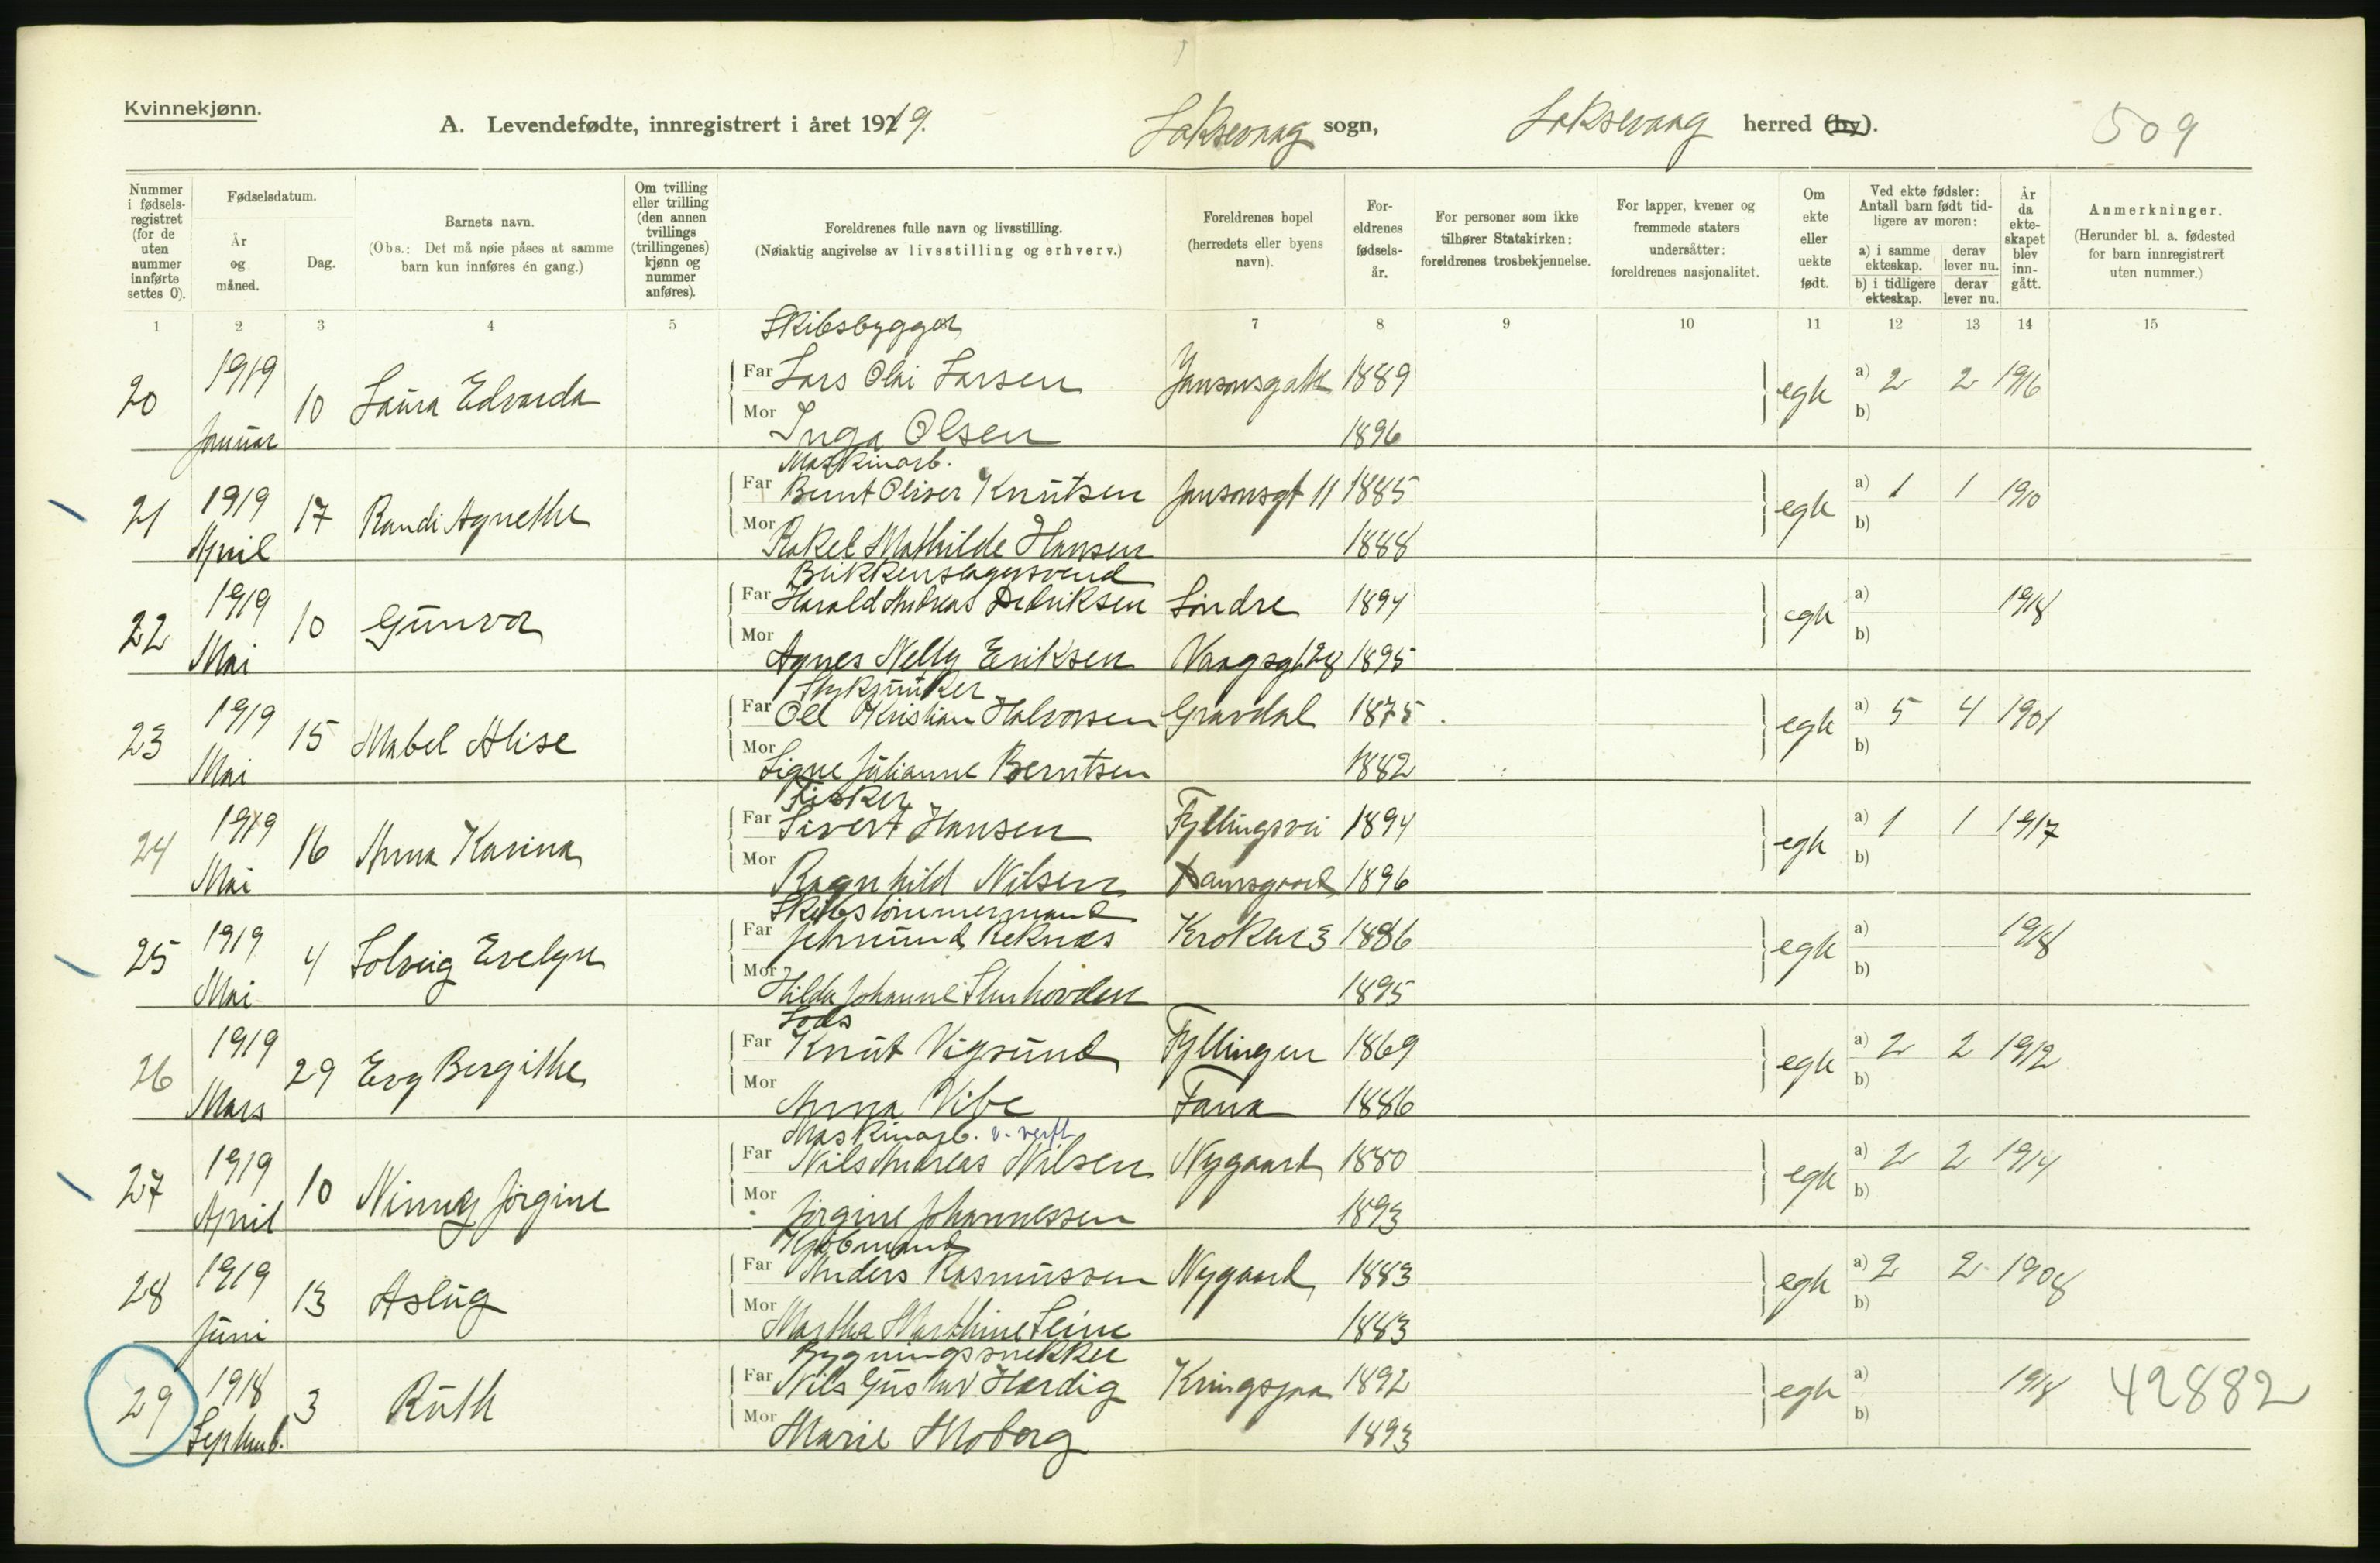 Kvinnekjønn.
A. Levendefødte, innregistrert i året 1919. Laksevaag sogn, Laksevaag herred (by). 509
Nummer i fødsels-registret (for de uten nummer innførte settes 0).
Fødselsdatum.
År og måned.
Dag.
Barnets navn.
(Obs.: Det må nøie påses at samme barn kun innføres én gang.)
Om tvilling eller trilling (den annen tvillings (trillingenes) kjønn og nummer anføres).
Foreldrenes fulle navn og livsstilling.
(Nøiaktig angivelse av livsstilling og erhverv.)
Foreldrenes bopel (herredets eller byens navn).
For-eldrenes fødsels-år.
For personer som ikke tilhører Statskirken: foreldrenes trosbekjennelse.
For lapper, kvener og fremmede staters undersåtter: foreldrenes nasjonalitet.
Om ekte eller uekte født.
Ved ekte fødsler: Antall barn født tid-ligere av moren:
a) i samme ekteskap. derav lever nu.
b) i tidligere ekteskap. derav lever nu.
År da ekte-skapet blev inn-gått.
Anmerkninger.
(Herunder bl. a. fødested for barn innregistrert uten nummer.)
1 2 3 4 5 7 8 9 10 11 12 13 14 15
Skibsbygger
20 1919 Januar 10 Laura Edvarda Far Lars Olai Larsen Jansonsgate 1889 egte a) 2 2 1916
Mor Inga Olsen 1896 b)
Maskinarb.
21 1919 April 17 Randi Agnethe Far Bernt Oliver Knutsen Jansonsgt 11 1885 egte a) 1 1 1910
Mor Rakel Mathilde Hansen 1888 b)
Blikkenslagersvend
22 1919 Mai 10 Gunvor Far Harald Andreas Dedriksen Söndre 1894 egte a) 1918
Mor Agnes Nelly Eriksen Vaagsgt. 28 1895 b)
Stykjunker
23 1919 Mai 15 Mabel Alise Far Ole Kristian Halvorsen Gravdal 1875 egte a) 5 4 1901
Mor Signe Julianne Berntsen 1882 b)
Fisker
24 1919 Mai 16 Anna Karina Far Sivert Hansen Fyllingsvei 1894 egte a) 1 1 1917
Mor Ragnhild Nilsen Damsgaard 1896 b)
Skibstömmermand
25 1919 Mai 4 Solveig Evelyn Far Jermund Reknes Kroken 3 1886 egte a) 1918
Mor Hilda Johanne Sturhovden 1895 b)
Lods
26 1919 Mars 29 Evy Bergithe Far Knut Vigsund Fyllingen 1869 egte a) 2 2 1912
Mor Anna Vibe Fana 1886 b)
Maskinarb. v. verft
27 1919 April 10 Ninny Jörgine Far Nils Andreas Nilsen Nygaard 1880 egte a) 2 2 1914
Mor Jörgine Johannessen 1893 b)
Kjöbmand
28 1919 Juni 13 Aslug Far Anders Rasmussen Nygaard 1883 egte a) 2 2 1908
Mor Martha Marthine Leine 1883 b)
Bygningssnekker
29 1918 Septemb. 3 Ruth Far Nils Gustav Hardig Kringsjaa 1892 egte a) 1918 42882
Mor Marie Moberg 1893 b)